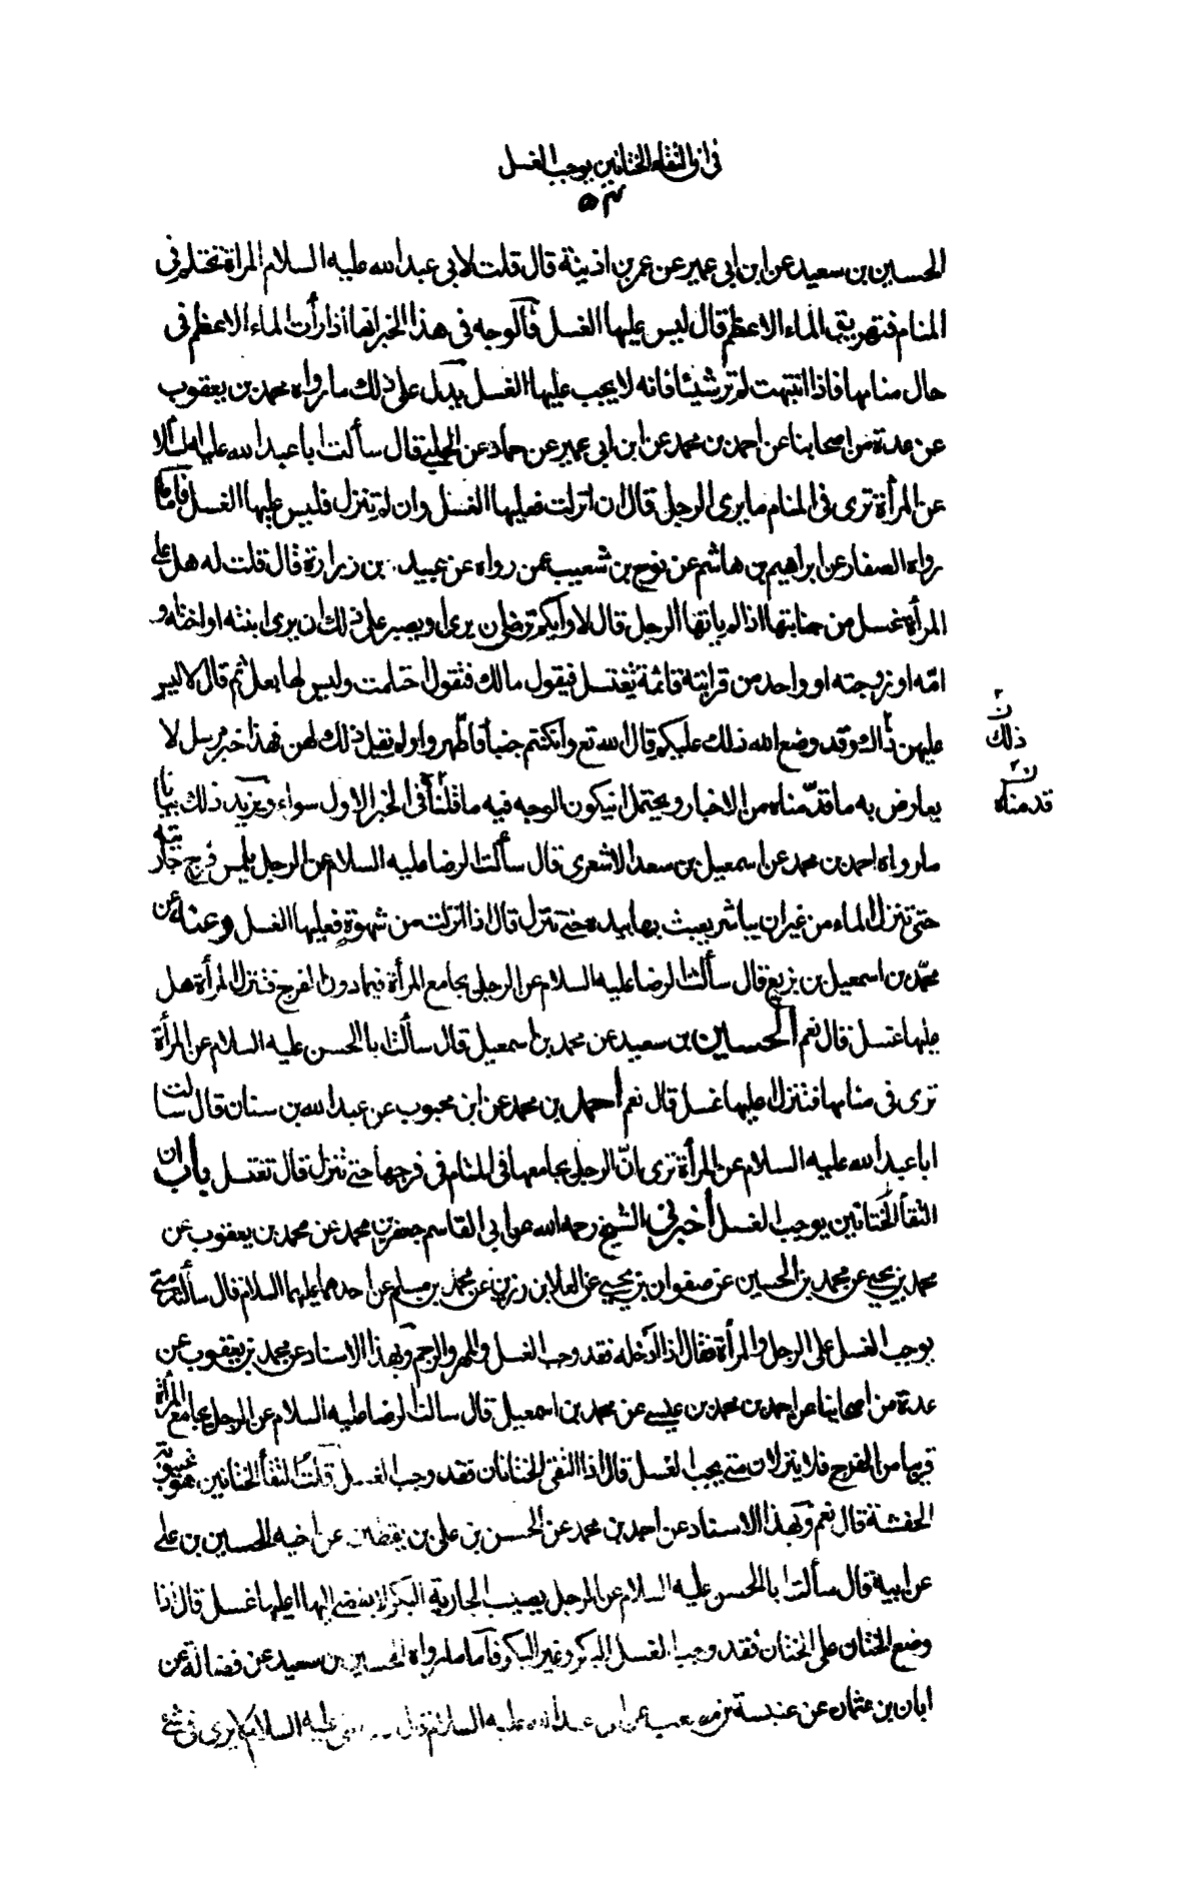 في ان التقاء الختانين يوجب الغسل
الحسين بن سعيد عن ابن ابي عمير عن عمر بن اذينة قال قلت لابي عبدالله عليه السلام المرأة تحتلم في
المنام فتهريق الماء الاعظم قال ليس عليها الغسل فالوجه في هذا الخبر انها اذا رأت الماء الاعظم في
حال منامها فاذا انتبهت لم تر شيئا فانه لا يجب عليها الغسل يدل على ذلك ما رواه محمد بن يعقوب
عن عدة من اصحابنا عن احمد بن محمد عن ابن ابي عمير عن حماد عن الحلبي قال سألت ابا عبدالله عليه السلا
عن المرأة ترى في المنام ما يرى الرجل قال ان انزلت فعليها الغسل وان لم تنزل فليس عليها الغسل فاما ما
رواه الصفار عن ابراهيم بن هاشم عن نوح بن شعيب عمن رواه عن عبيد بن زرارة قال قلت له هل على
المرأة غسل من جنابتها اذا لم ياتها الرجل قال لا وايكم يرضى ان يرى او يصبر على ذلك ان يرى ابنته او اخته و
امّه او زوجته او واحد من قرابته قائمة تغتسل فيقول مالك فتقول احتلمت وليس لها بعل ثم قال لا ليس
عليهن ذاك وقد وضع الله ذلك عليكم قال الله تع وان كنتم جنبا فاطّهروا ولم يقل ذلك لهن فهذا خبر مرسل لا
ن ذلك
يعارض به ما قدّمناه من الاخبار ويحتمل ان يكون الوجه فيه ما قلناه في الخبر الاول سواء ويزيد ذلك بيانا
ن قدمناه
ما رواه احمد بن محمد عن اسمعيل بن سعد الاشعري قال سألت الرضا عليه السلام عن الرجل يلمس فرج جاريته
حتى تنزل الماء من غير ان يباشر يعبث بها بيده حتى تنزل قال اذا انزلت من شهوة فعليها الغسل وعنه عن
محمّد بن اسمعيل بن بزيع قال سألت الرضا عليه السلام عن الرجل يجامع المرأة فيما دون الفرج فتنزل المرأة هل
عليها غسل قال نعم الحسين بن سعيد عن محمد بن اسمعيل قال سألت ابا الحسن عليه السلام عن المرأة
ترى في منامها فتنزل عليها غسل قال نعم احمد بن محمد عن ابن محبوب عن عبدالله بن سنان قال سالت
ابا عبدالله عليه السلام عن المرأة ترى انّ الرجل يجامعها في المنام في فرجها حتى تنزل قال تغتسل باب ان
التقأ الختانين يوجب الغسل أخبرني الشيخ رحمه الله عن ابي القاسم جعفر بن محمد عن محمد بن يعقوب عن
محمد بن يحيى عن محمد بن الحسين عن صفوان بن يحيى عن العلا بن رزين عن محمد بن مسلم عن احدهما عليهما السلام قال سألته متى
يوجب الغسل على الرجل والمرأة فقال اذا ادخله فقد وجب الغسل والمهر والرجم وبهذا الاسناد عن محمد بن يعقوب عن
عدة من اصحابنا عن احمد بن محمد بن عيسى عن محمد بن اسمعيل قال سالت الرضا عليه السلام عن الرجل يجامع المرأة
قريبا من الفرج فلا ينزلان متى يجب الغسل قال اذا التقى الختانان فقد وجب الغسل قلت التقأ الختانين هو غيبوبة
الحفشة قال نعم وبهذا الاسناد عن احمد بن محمد عن الحسن بن علي بن يقطين عن اخيه الحسين بن علي
عن ابيه قال سألت ابا الحسن عليه السلام عن الرجل يصيب الجارية البكر لا يفضى اليها اعليها غسل قال اذا
وضع الختان على الختان فقد وجب الغسل البكر وغير البكر فاما ما رواه الحسين بن سعيد عن فضالة عن
ابان بن عثمان عن عنبسة بن مصعب عن ابي عبدالله عليه السلام قال عليه السلام لا يرى في شئ